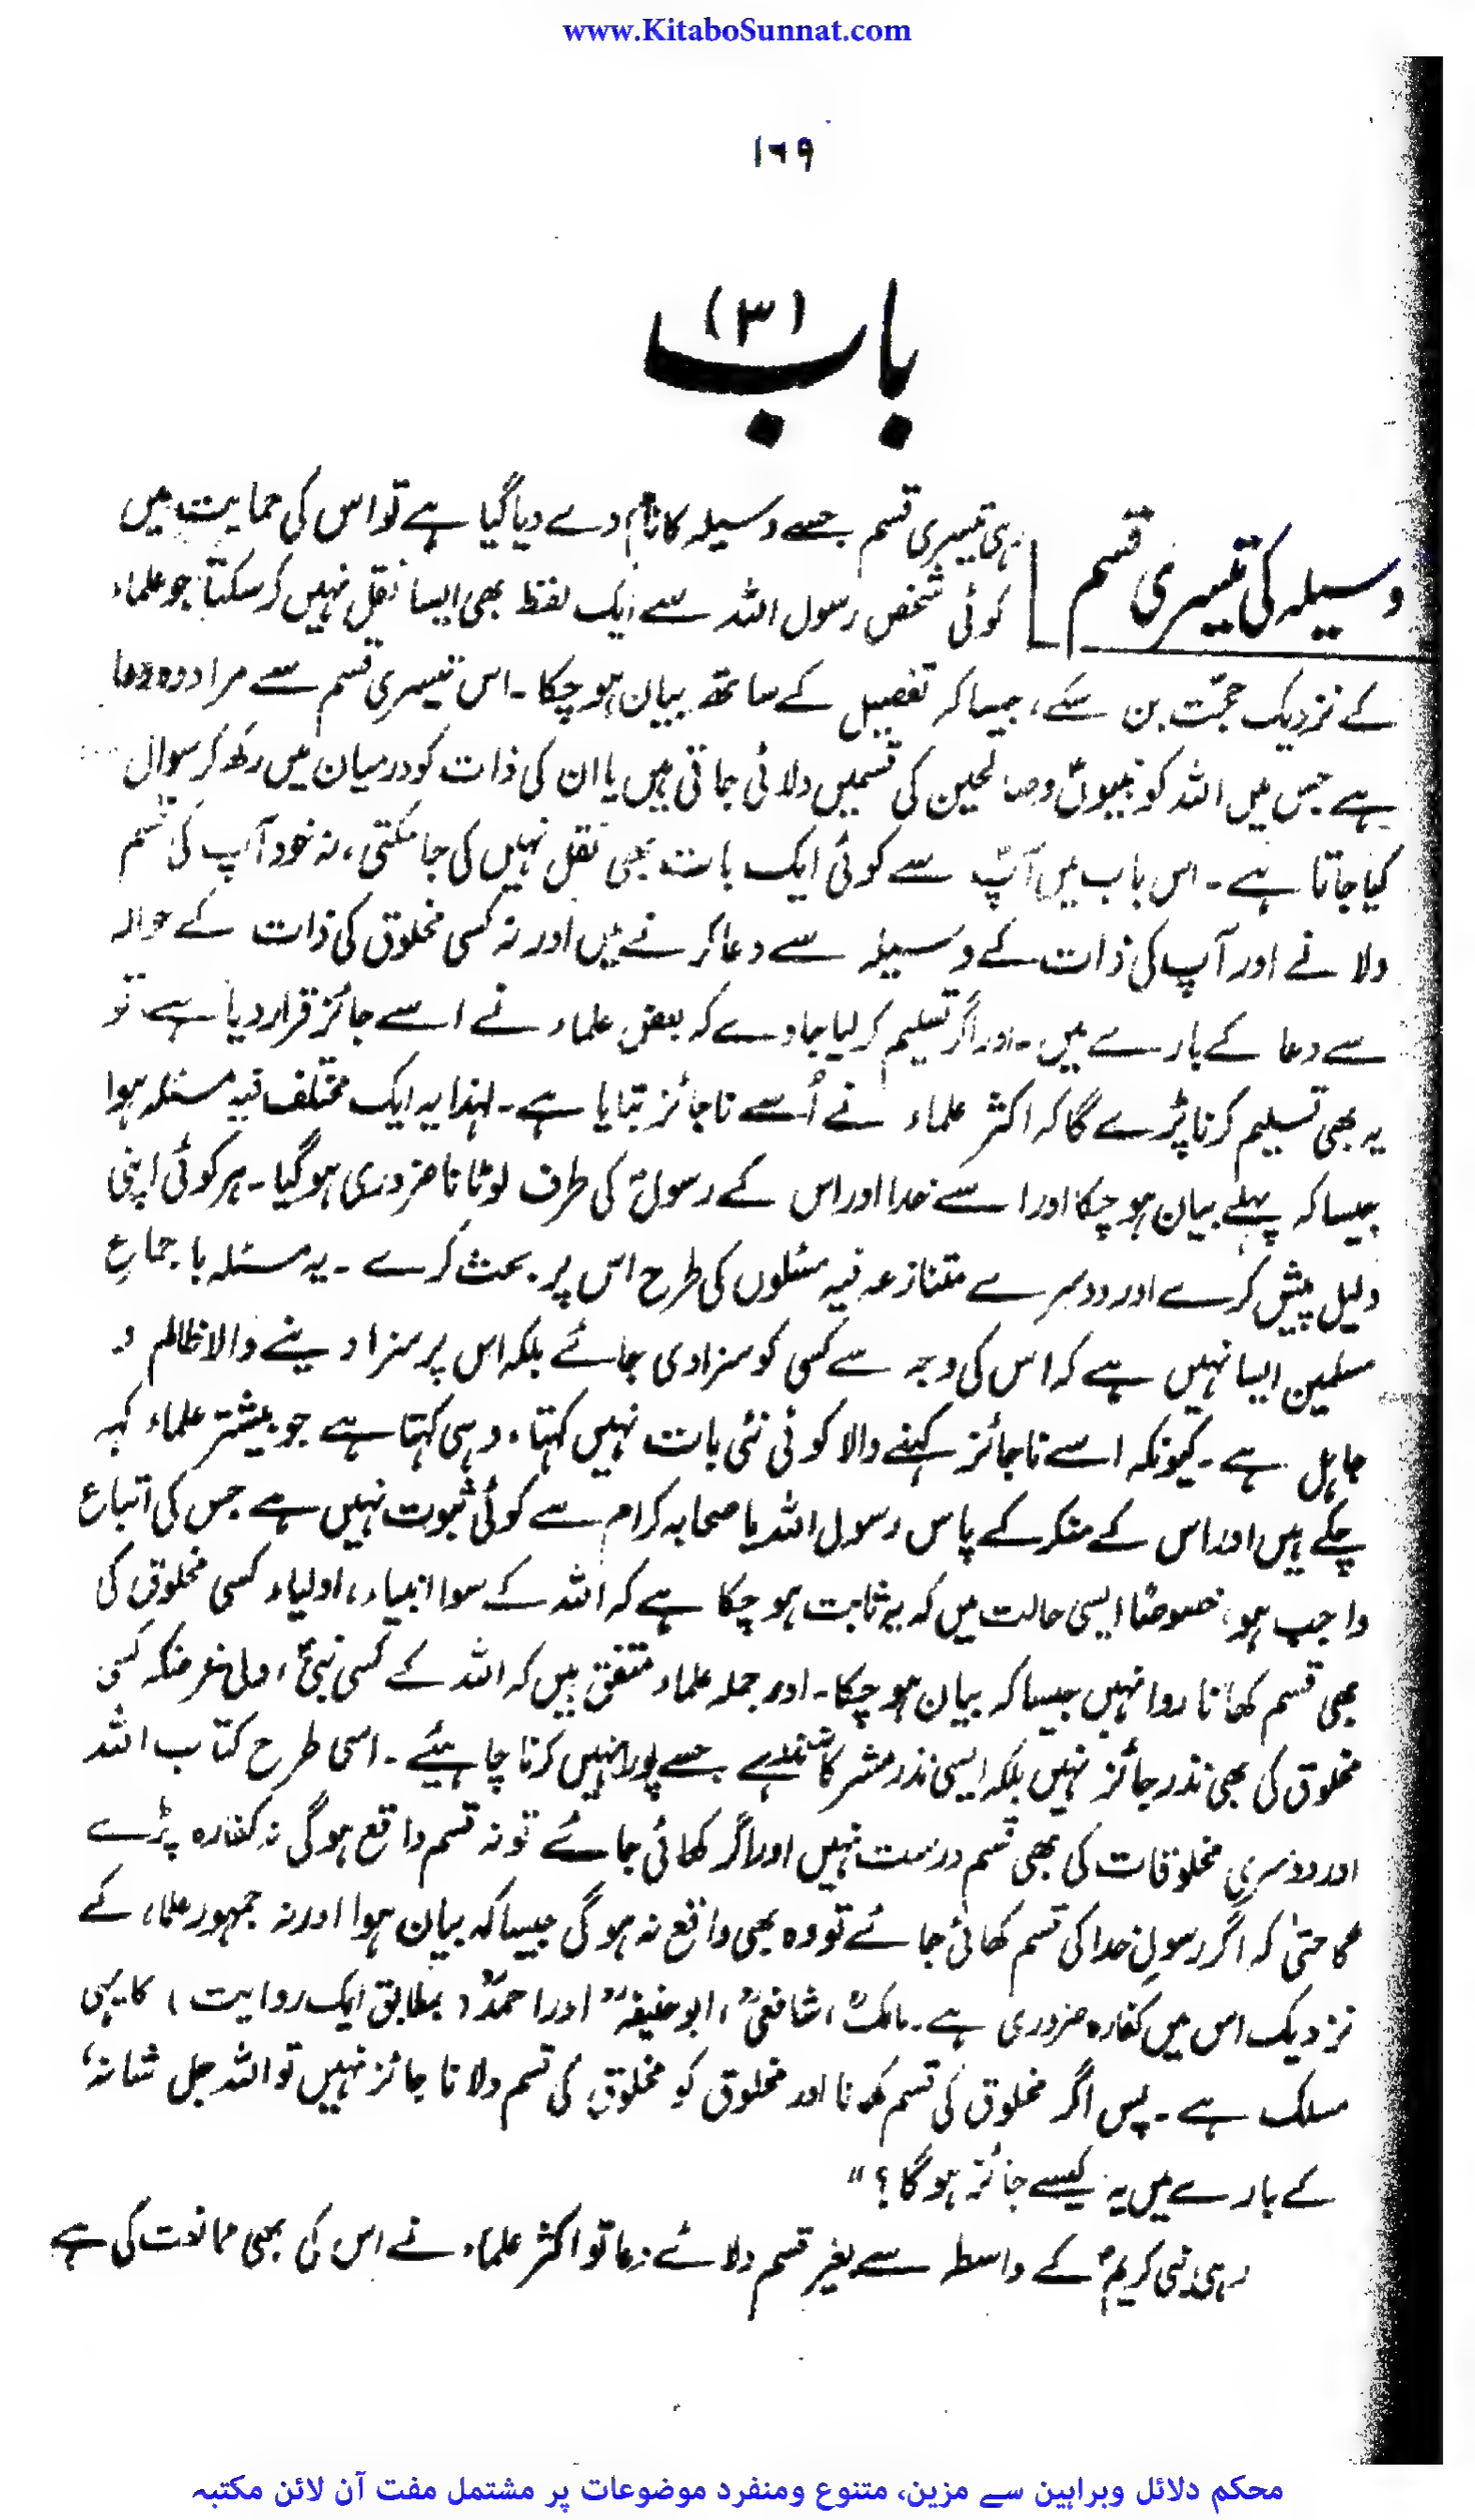 www.KitaboSunnat.com
۱۶۹
باب (۳)
وسیلہ کی تیسری قسم
رہی تیسری قسم جسے وسیلہ کا نام دے دیا گیا ہے تو اس کی حمایت میں
کوئی شخص رسول اللہ سے ایک لفظ بھی ایسا نقل نہیں کر سکتا جو علماء
کے نزدیک حجّت بن سکے، جیسا کہ تفصیل کے ساتھ بیان ہو چکا۔ اس تیسری قسم سے مراد وہ دعا
ہے جس میں اللہ کو نبیوںؑ وصالحین کی قسمیں دلائی جاتی ہیں یا ان کی ذات کو درمیان میں رکھ کر سوال
کیا جاتا ہے۔ اس باب میں آپؐ سے کوئی ایک بات بھی نقل نہیں کی جا سکتی، نہ خود آپ کی قسم
دلانے اور آپ کی ذات کے وسیلہ سے دعا کرنے میں اور نہ کسی مخلوق کی ذات کے حوالہ
سے دعا کے بارے میں۔ اور اگر تسلیم کر لیا جاوے کہ بعض علماء نے اسے جائز قرار دیا ہے تو
یہ بھی تسلیم کرنا پڑے گا کہ اکثر علماء نے اُسے ناجائز بتایا ہے۔ لہذا یہ ایک مختلف فیہ مسئلہ ہوا
جیسا کہ پہلے بیان ہو چکا اور اسے خدا اور اس کے رسولؐ کی طرف لوٹانا ضروری ہو گیا۔ ہر کوئی اپنی
دلیل پیش کرے اور دوسرے متنازعہ فیہ مسئلوں کی طرح اس پر بحث کرے۔ یہ مسئلہ باجماعِ
مسلمین ایسا نہیں ہے کہ اس کی وجہ سے کسی کو سزا دی جائے بلکہ اس پر سزا دینے والا ظالم و
جاہل ہے۔ کیونکہ اسے ناجائز کہنے والا کوئی نئی بات نہیں کہتا، وہی کہتا ہے جو بیشتر علماء کہہ
چکے ہیں اور اس کے منکر کے پاس رسول اللہ یا صحابہ کرام سے کوئی ثبوت نہیں ہے جس کی اتباع
واجب ہو، خصوصًا ایسی حالت میں کہ یہ ثابت ہو چکا ہے کہ اللہ کے سوا انبیاء، اولیاء کسی مخلوق کی
بھی قسم کھانا روا نہیں جیسا کہ بیان ہو چکا۔ اور جملہ علماء متفق ہیں کہ اللہ کے کسی نبیؑ، ولی غرضکہ کسی
مخلوق کی بھی نذر جائز نہیں بلکہ ایسی نذر مشرکانہ ہے جسے پورا نہیں کرنا چاہیئے۔ اسی طرح کتاب اللہ
اور دوسری مخلوقات کی بھی قسم درست نہیں اور اگر کھائی جائے تو نہ قسم واقع ہوگی نہ کفارہ پڑے
گا حتیٰ کہ اگر رسولِ خدا کی قسم کھائی جائے تو وہ بھی واقع نہ ہوگی جیسا کہ بیان ہوا اور نہ جمہور علماء کے
نزدیک اس میں کفارہ ضروری ہے۔ مالکؒ، شافعیؒ، ابو حنیفہؒ اور احمدؒ (بمطابق ایک روایت) کا یہی
مسلک ہے۔ پس اگر مخلوق کی قسم کھانا اور مخلوق کو مخلوق کی قسم دلانا جائز نہیں تو اللہ جل شانہٗ
کے بارے میں یہ کیسے جائز ہوگا؟"
رہی نبی کریمؐ کے واسطہ سے بغیر قسم دلائے دعا تو اکثر علماء نے اس کی بھی ممانعت کی ہے
محکم دلائل وبراہین سے مزین، متنوع ومنفرد موضوعات پر مشتمل مفت آن لائن مکتبہ